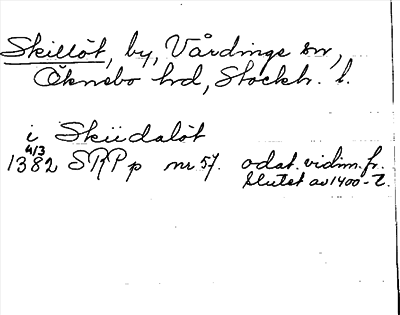 Skillöt, by, Vårdinge sn,
Öknebo hrd, Stockh. l.
i Skiidalöt
4/3
1382 SRP p nr 57. odat. vidim. fr.
slutet av 1400-t.